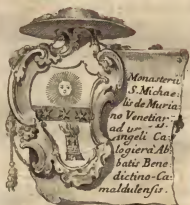 Monasterii
S. Michae
lis de Muria
no Venetiar.
ad usum
Angeli Ca
logierà Ab
batis Bene
dictino-Ca
maldulensis.